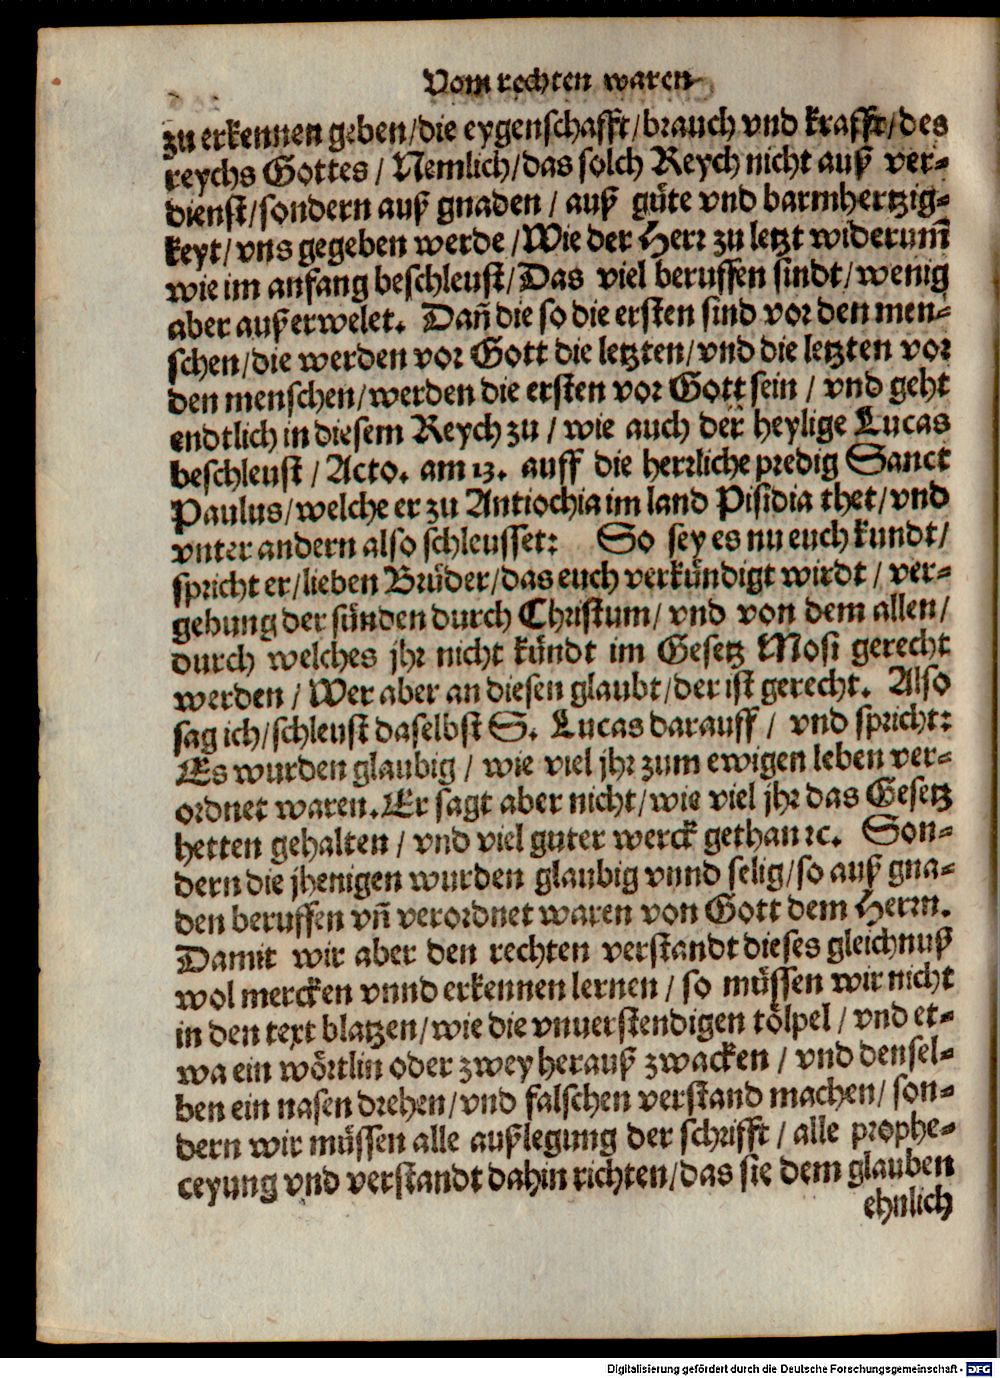 Vom rechten waren
zu erkennen geben/die eygenschafft/brauch vnd krafft/des
reychs Gottes / Nemlich/das solch Reych nicht auß ver-
dienst/sondern auß gnaden / auß güte vnd barmhertzig-
keyt/ vns gegeben werde /Wie der Herr zu letzt widerum̄
wie im anfang beschleust/Das viel beruffen sindt/wenig
aber außerwelet. Dañ die so die ersten sind vor den men-
schen/die werden vor Gott die letzten/vnd die letzten vor
den menschen/werden die ersten vor Gott sein / vnd geht
endtlich in diesem Reych zu / wie auch der heylige Lucas
beschleust / Acto. am 13. auff die herrliche predig Sanct
Paulus/welche er zu Antiochia im land Pisidia thet/vnd
vnter andern also schleusset: So sey es nu euch kundt/
spricht er/lieben Brüder/das euch verkündigt wirdt / ver-
gebung der sünden durch Christum/ vnd von dem allen/
durch welches jhr nicht kündt im Gesetz Mosi gerecht
werden / Wer aber an diesen glaubt/der ist gerecht. Also
sag ich/schleust daselbst S. Lucas darauff / vnd spricht:
Es wurden glaubig / wie viel jhr zum ewigen leben ver-
ordnet waren. Er sagt aber nicht/wie viel jhr das Gesetz
hetten gehalten / vnd viel guter werck gethan ꝛc. Son-
dern die jhenigen wurden glaubig vnnd selig/so auß gna-
den beruffen vñ verordnet waren von Gott dem Herrn.
Damit wir aber den rechten verstandt dieses gleichnuß
wol mercken vnnd erkennen lernen / so müssen wir nicht
in den text blatzen/wie die vnuerstendigen tölpel / vnd et-
wa ein wörtlin oder zwey herauß zwacken / vnd densel-
ben ein nasen drehen/vnd falschen verstand machen/ son-
dern wir müssen alle außlegung der schrifft / alle prophe-
ceyung vnd verstandt dahin richten/das sie dem glauben
ehnlich
Digitalisierung gefördert durch die Deutsche Forschungsgemeinschaft - DFG